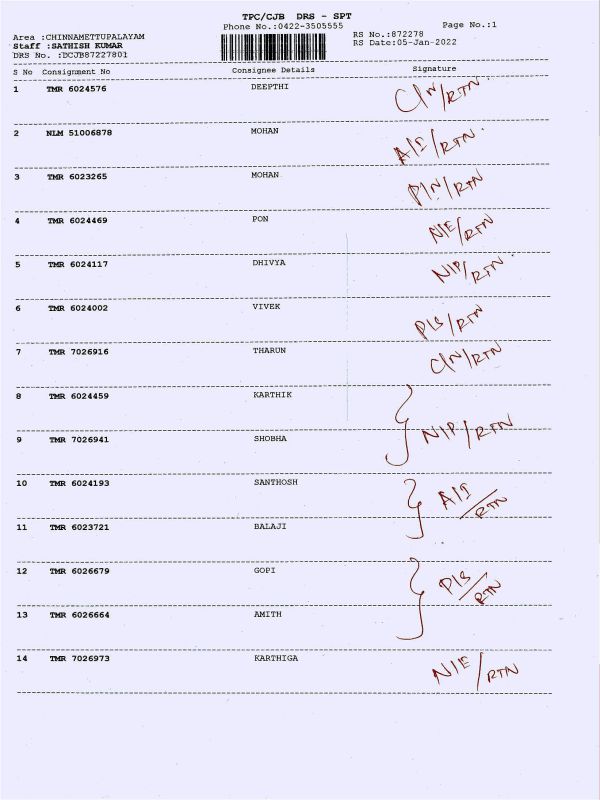 TPC/CJB DRS - SPT
Phone No.:0422-3505555
Page No.:1
Area :CHINNAMETTUPALAYAM
RS No.:872278
Staff :SATHISH KUMAR
RS Date:05-Jan-2022
DRS No. :DCJB87227801
S No Consignment No Consignee Details Signature
1 TMR 6024576 DEEPTHI C/N/RTN
2 NLM 51006878 MOHAN A/I/RTN
3 TMR 6023265 MOHAN P/N/RTN
4 TMR 6024469 PON N/E/RTN
5 TMR 6024117 DHIVYA N/P/RTN
6 TMR 6024002 VIVEK P/S/RTN
7 TMR 7026916 THARUN C/N/RTN
8 TMR 6024459 KARTHIK
N/P/RTN
9 TMR 7026941 SHOBHA
10 TMR 6024193 SANTHOSH
A/I/RTN
11 TMR 6023721 BALAJI
12 TMR 6026679 GOPI
P/S/RTN
13 TMR 6026664 AMITH
14 TMR 7026973 KARTHIGA N/E/RTN